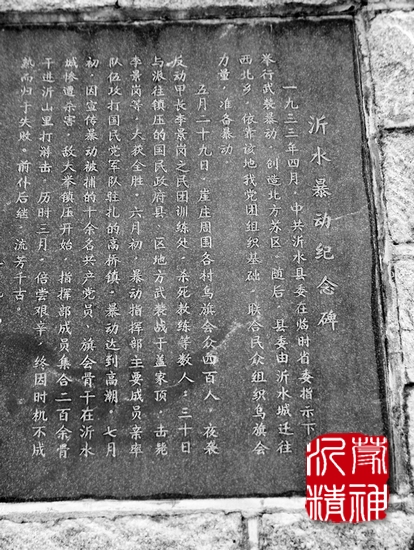 沂水暴动纪念碑
一九三三年四月，中共沂水县委在临时省委指示下，
举行武装暴动，创造北方苏区。随后，县委由沂水城迁往
西北乡，依靠该地我党团组织基础，联合民众组织鸟旗会
力量，准备暴动。
五月二十九日，崖庄周围各村鸟旗会众四百人，夜袭
反动甲长李景岗之民团训练处，杀死教练等数人；三十日
与派往镇压的国民政府县、区地方武装战于盖家顶，击毙
李景岗等，大获全胜。六月初，暴动指挥部主要成员亲率
队伍攻打国民党军队驻扎的高桥镇，暴动达到高潮。七月
初，因宣传暴动被捕的十余名共产党员、旗会骨干在沂水
城惨遭杀害，敌大举镇压开始，指挥部成员集合二百余骨
干进沂山里打游击，历时三月，倍尝艰辛，终因时机不成
熟而归于失败。前仆后继，流芳千古。
沂蒙
精神